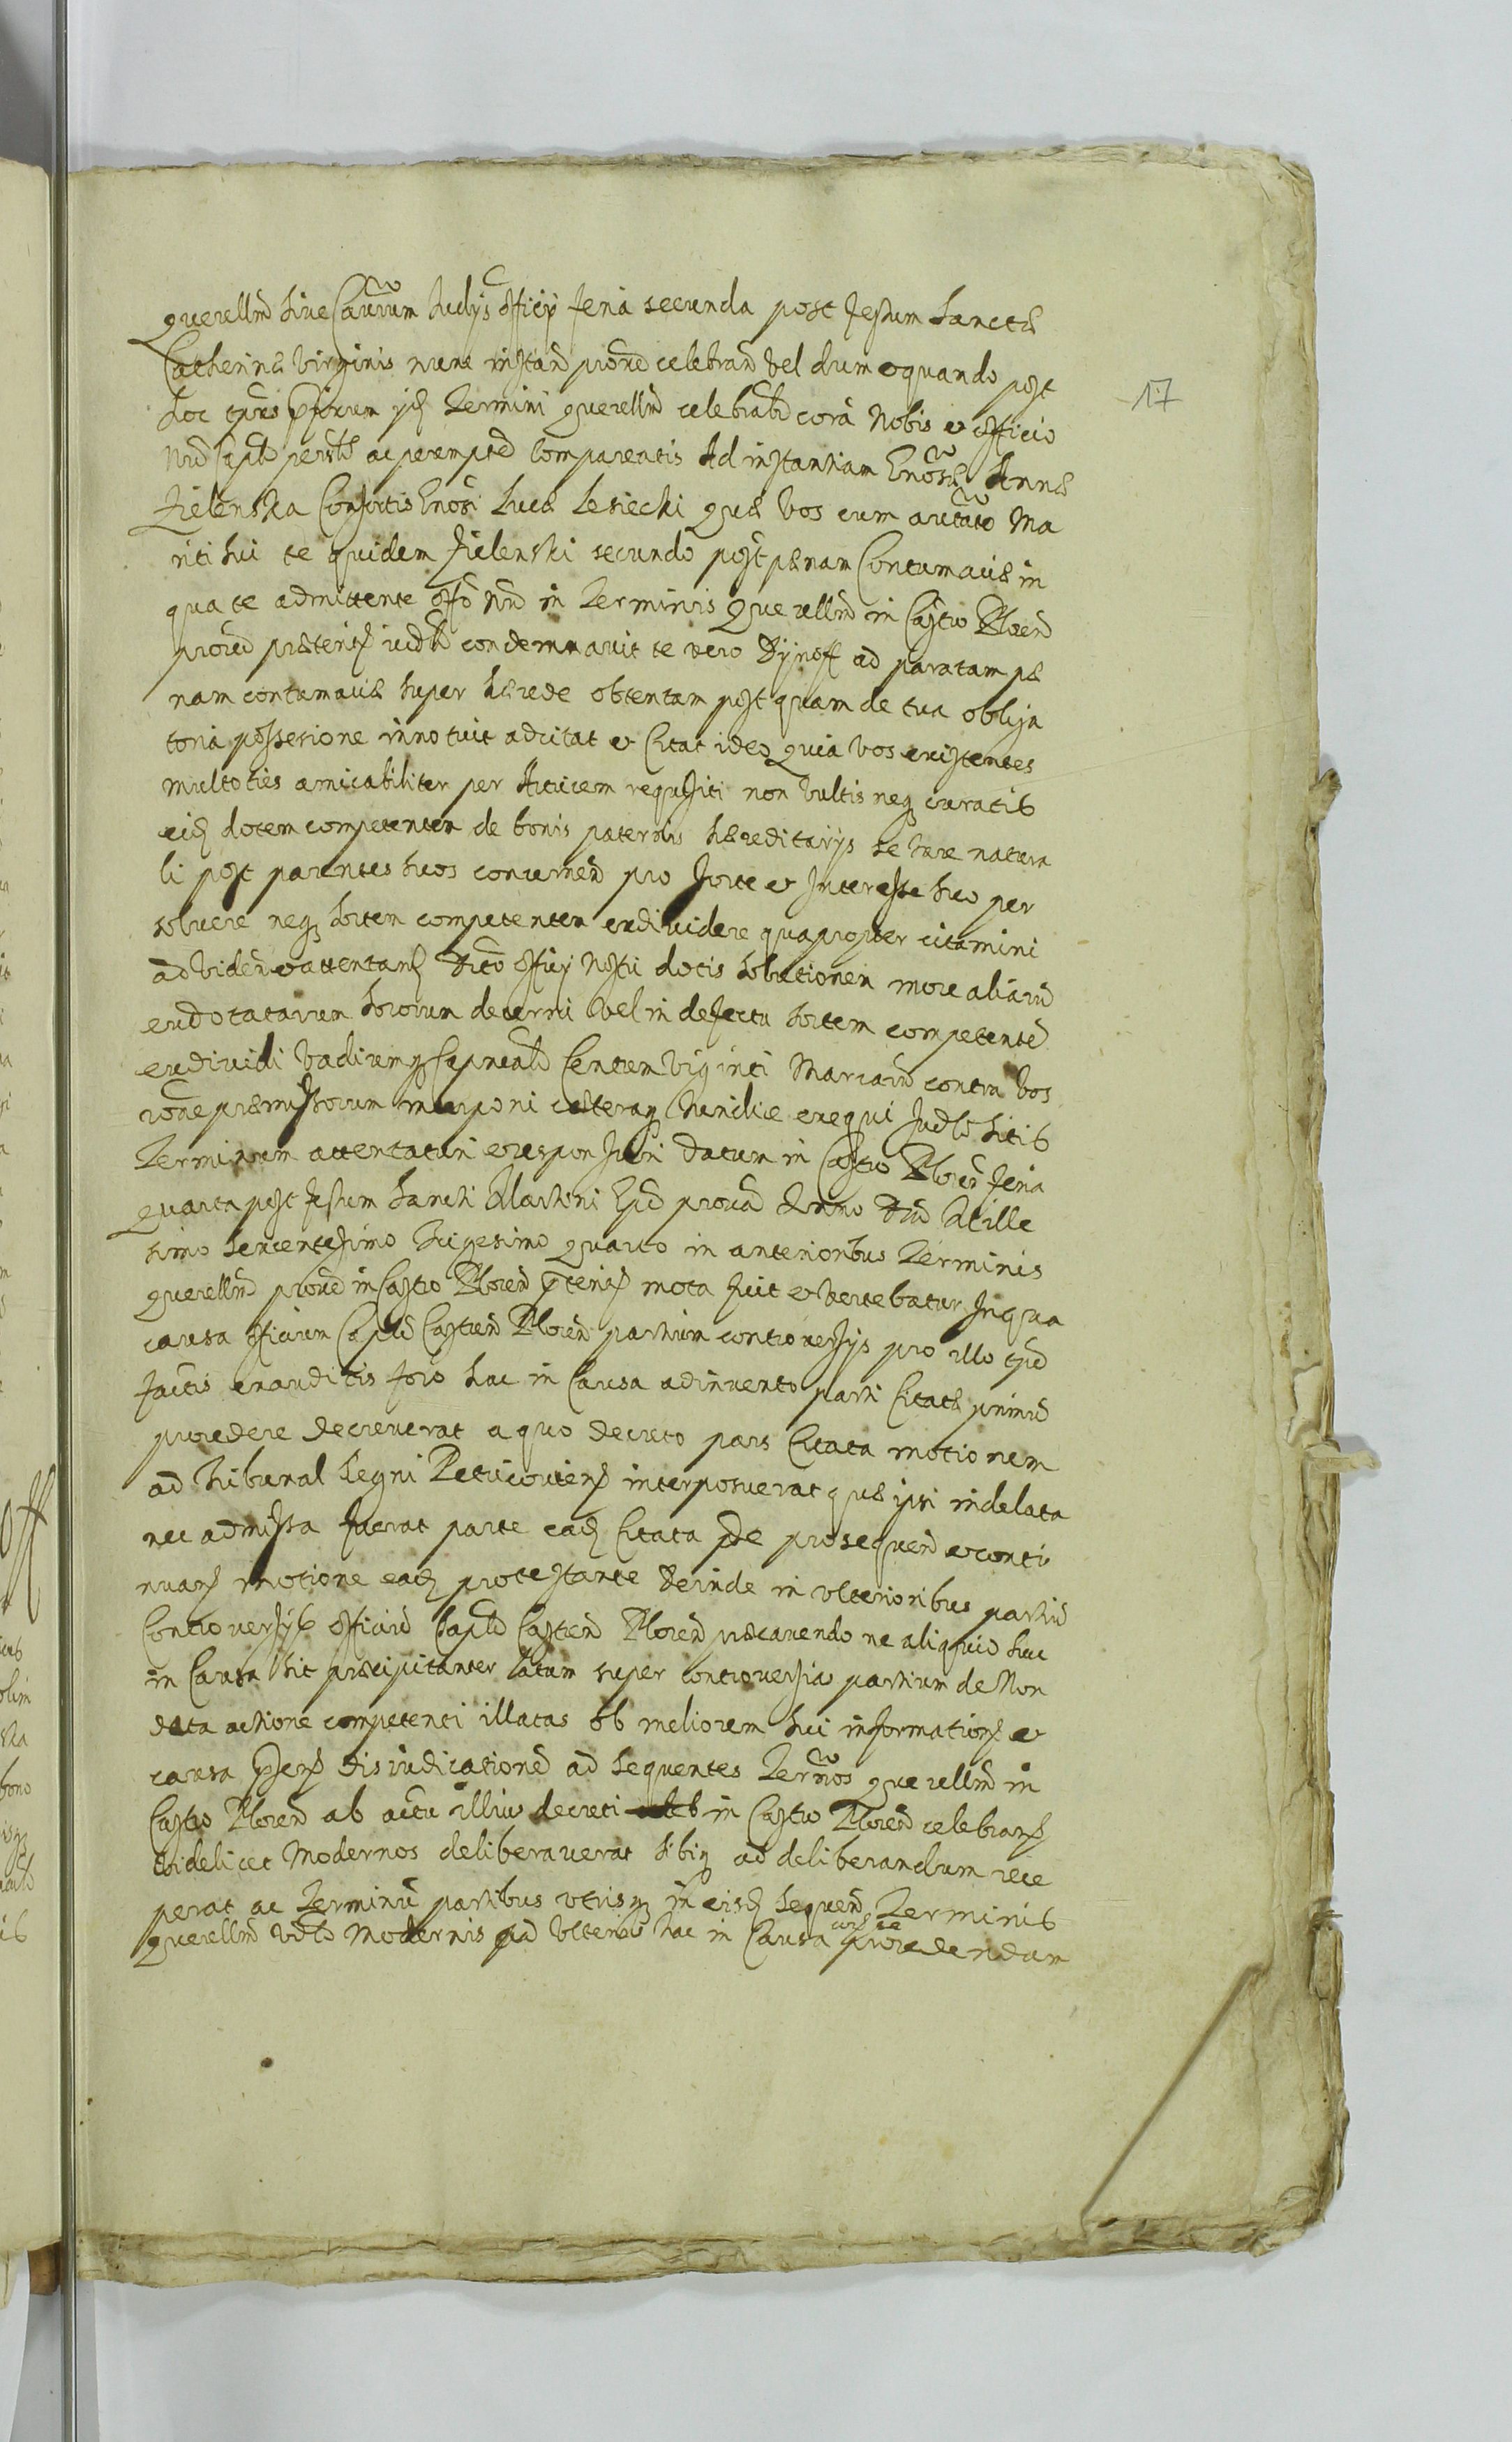 querellar͂ siue Causarum Iudijs officij feria secunda post festum Sanctæ
Catherinæ Virginis nunc instan͂ prox͂e celebran͂ vel dum et quando post
hoc ijdem Termini querellar͂ celebrabun͂ corā Nobis et officio
nr͂o Capitan͂ perso͂ ac perempto͂ Compareatis Ad instantiam Gnosæ Annæ
Zielenska Consortis Gnosi Lucæ Lesiecki quæ vos cum autoritate Ma
riti sui te quidem Zielenski secundo post pænam Contumaciæ in
qua te admittente offo nr͂o in Terminis querellar͂ in Castro Plocen͂
prox͂e præteritis iudi͂r condemnauit te vero ad paratam pæ
nam contumaciæ super hærede obtentam postquam de tua obliga
toria possesione innotuit adcitat et Citat ideo quia vos existentes
multoties amicabiliter per Actricem requisiti non vultis neq curatis
eid dotem competentem de bonis paternis hæreditarijs se iure natura
li post parentes suos concernen͂ pro sorte et Interesse suo per
soluere neq sortem competentem exdiuidere quapropter citamini
ad viden͂ et attentan͂ officij nostri dotis solutionem more aliarum
exdotatarum sororum decerni vel in defectu sortem competente͂
exdiuidi vadiumq Capneale Centum viginti Marcarum contra vos
rōne præmissorum interponi cæteraq Iuridice exequi Iudr͂ Sitis
Terminum attentaturi et responsuri Datum in Castro Plocen͂ feria
quarta post festum Sancti Martini Ep͂i prox͂a Anno Dn͂i Mille
simo Sexcentesimo Trigesimo quarto in anterioribus Terminis
querellar͂ prox͂e in Castro Plocen͂ p͂teritis mota fuit et vertebatur In qua
causa officium Capitan͂ Castren͂ Plocen͂ partium controuersijs pro illo
factis exauditis foro hac in Causa adinuento parti Citatæ
procedere decreuerat a quo decreto pars Citata motionem
ad Tribunal Regni Petricouien͂ interposuerat quæ ipsi indelata
nec admissa fuerat parte ead Citata de prosequen͂ et conti
nuan͂ motione ead protestante deinde in vlterioribus partium
Controuersijs officium Capitan͂ Castren͂ Plocen͂ præcauendo ne aliquid huc
in Causa sit præcipitanter latum super controuersia partium de Non
data actione competenti illatas ob meliorem sui information͂ et
causa p͂sen͂ disiudicatione͂ ad sequentes Terminos querellar͂ in
Castro Plocen͂ ab actu illius decreti in Castro Plocen͂ celebran͂
videlicet Modernos deliberauerat sibiq ad deliberandum rece
perat ac Terminu͂ partibus vtrisq in eisd sequen͂ Terminis
querellar͂ vdlt Modernis ad vlterius hac in Causa procedendum
17